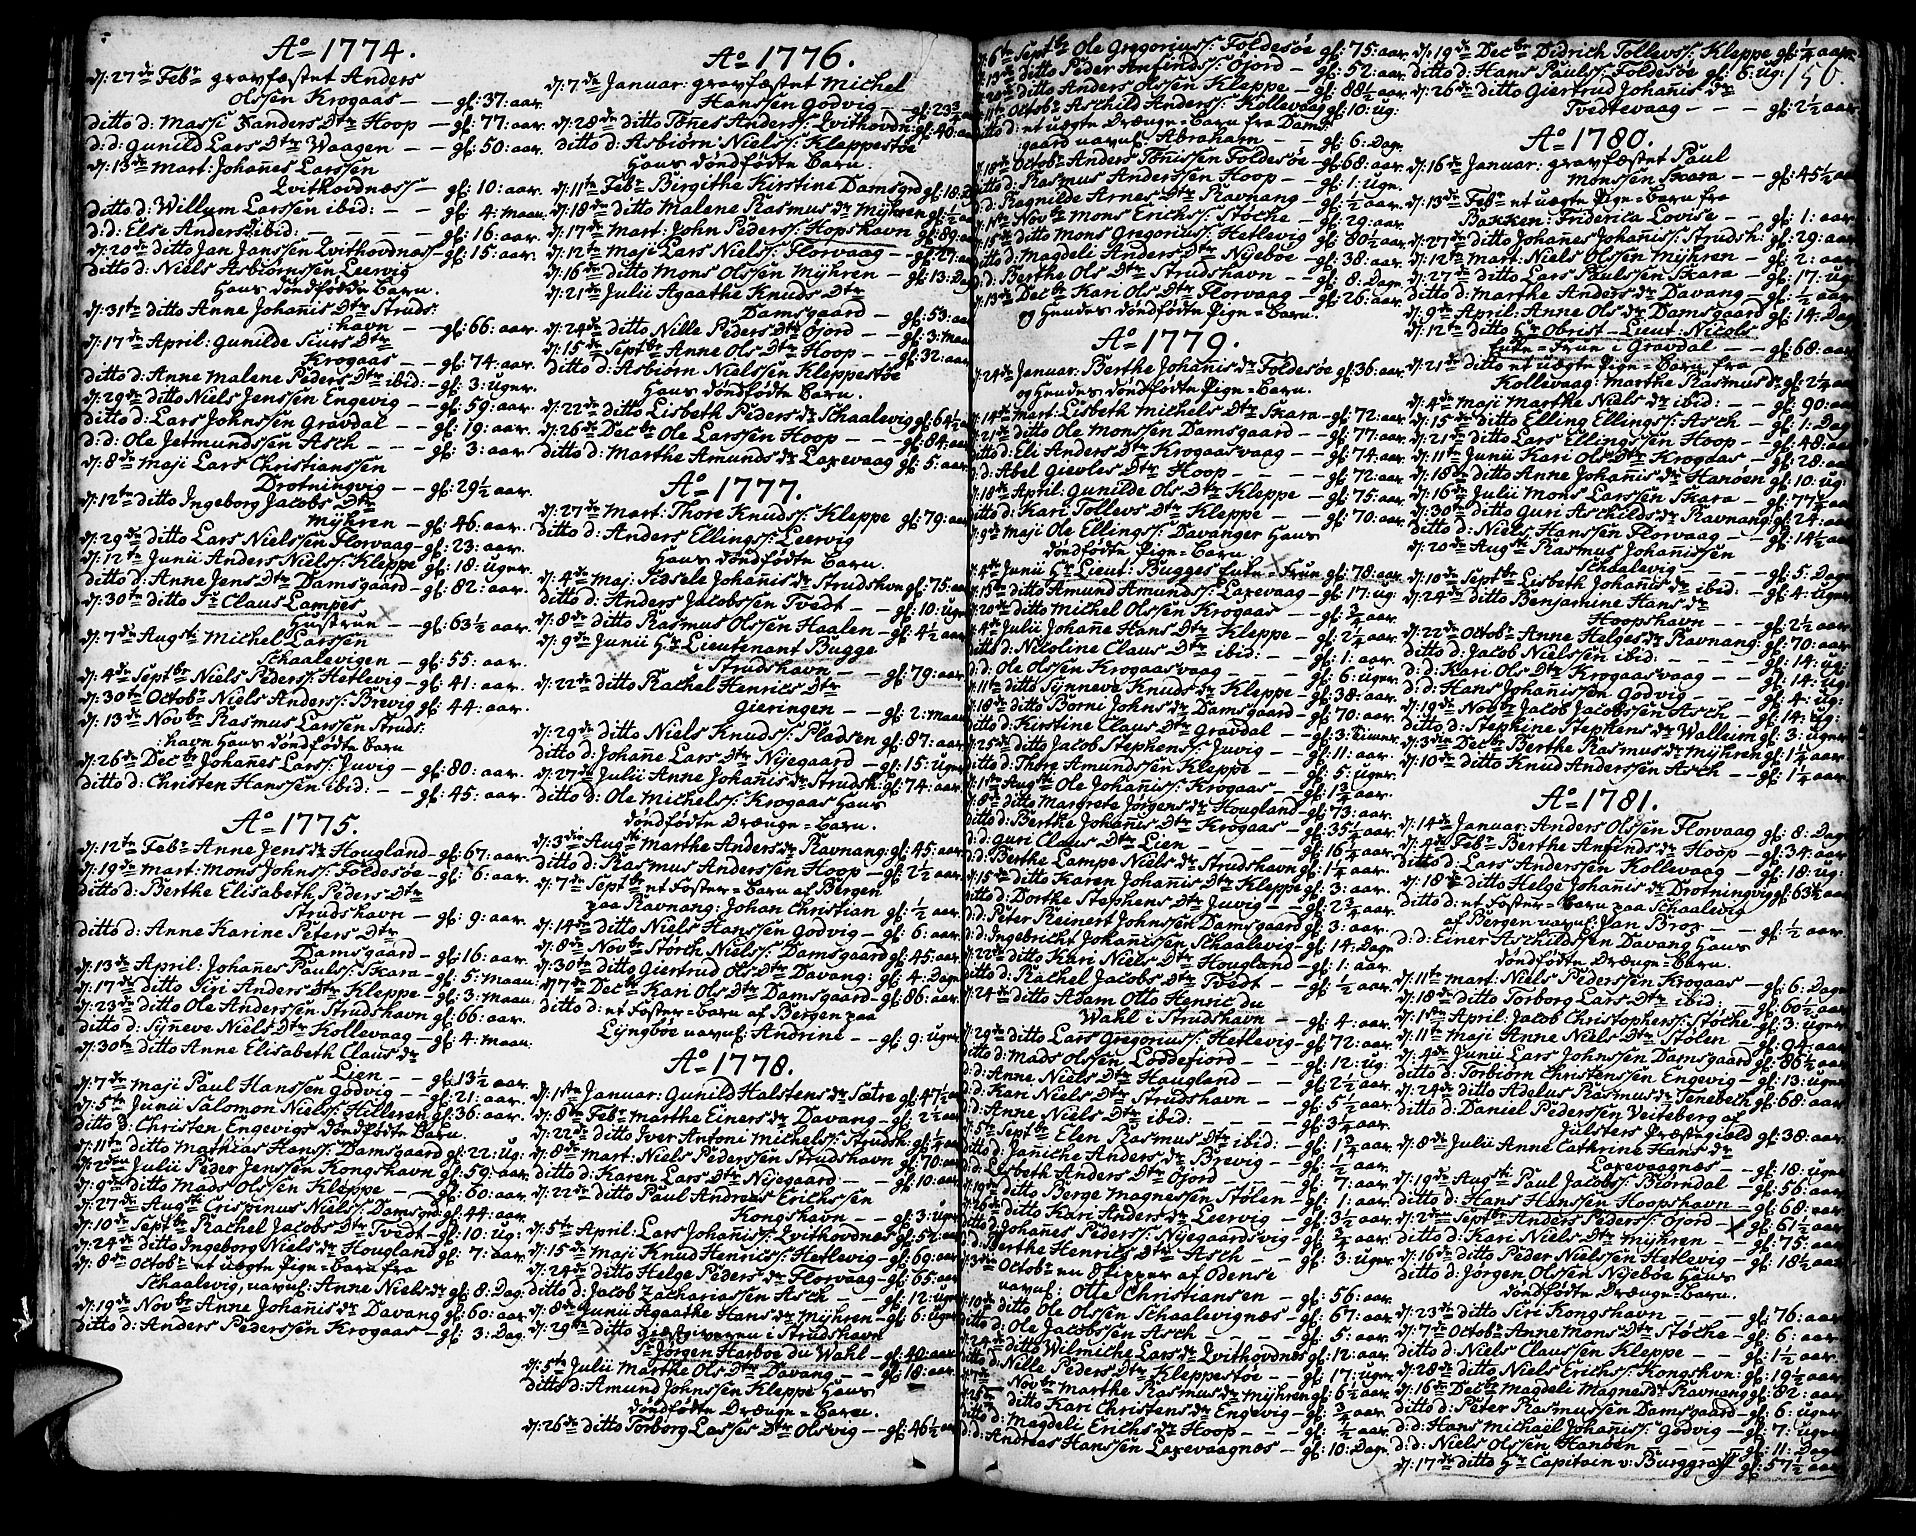 Ao 1774.
d: 27de Febr gravfæstet Anders
Olssen Krogaas — gl: 37: aar.
ditto d: Massi Sanders Dtr Hoop — gl: 77: aar.
d: d: Gunild Lars Dtr Waagen — gl: 50: aar.
d: 13de Mart: Johañes Larssen
Qvithovdnæss — gl: 10: aar.
ditto d: Willum Larssen ibid: — gl: 4: maan.
d: d: Else Anders: ibid: — gl: 16: aar.
d: 20de ditto Jan Janssen Qvithovdnæs — gl: 15: aar.
ditto d: Niels Asbiørnssen Leervig
Hans døndfødte Barn.
d: 31te ditto Anne Johañis Dtr Struds:
:havn — gl: 66: aar.
d: 17de April: Gunilde Siurs Dtr
Krogaas — gl: 74: aar.
ditto d: Anne Malene Peders Dtr ibid: — gl: 3: uger.
d: 29de ditto Niels Jenssen Engevig — gl: 59: aar.
ditto d: Lars Johnssen Gravdal — gl: 19: aar.
d: d: Ole Jetmundssen Asch — gl: 3: aar.
d: 8de Maji Lars Christianssen
Drotningvig — gl: 29½ aar.
d: 12te ditto Ingeborg Jacobs Dtr
Mÿhren — gl: 46: aar.
d: 29de ditto Lars Nielssen Florvaag — gl: 23: aar.
d: 12te Junii Anders Niels: Kleppe gl: 18: uger.
ditto d: Anne Jens Dtr Damsgaard — gl: 82: aar.
d: 30te ditto Sr Claus Lampes
Hustrue — gl: 63½ aar.
d: 7de Augste Michel Larssen
Schaalevigen — gl: 55: aar.
d: 4de Septbr Niels Peders: Hetlevig — gl: 41: aar.
d: 30te Octobr Niels Anders: Brevig gl: 44: aar.
d: 13de Novbr Rasmus Larssen Struds:
:havn Hans døndfødte Barn
d: 26de Decbr Johañes Lars: Juvig — gl: 80: aar.
ditto d: Christen Hanssen ibid: — gl: 45: aar.
Ao 1775.
d: 12te Febr Anne Jens Dr Hougland — gl: 67: aar.
d: 19de Mart: Mons Johns: Foldesøe — gl: 6: aar.
ditto d: Berthe Elisabeth Peders Dtr
Strudshavn — gl: 9: aar.
ditto d: Anne Karine Peters Dtr
Damsgaard — gl: 16: aar.
d: 13de April: Johañes Pauls: Skara — gl: 5: maan.
d: 17de ditto Siri Anders Dtr Kleppe — gl: 3: maan.
d: 23de ditto Ole Anderssen Strudshavn gl: 66: aar.
ditto d: Sÿneve Niels Dtr Kollevaag — gl: 4: maan.
d: 30te ditto Anne Elisabeth Claus Dr
Lien — gl: 13½ aar.
d: 7de Maji Paul Hanssen Godvig — gl: 21: aar.
d: 5te Junii Salomon Niels: Hilleren gl: 36: aar.
ditto d: Christen Engevigs døndfødte Barn.
d: 11te ditto Mathias Hans: Damsgaard gl: 22: ug:
d: 2den Julii Peder Jenssen Kongshavn gl: 59: aar.
d: 9de ditto Mads Olssen Kleppe — gl: 60: aar.
d: 27de Augste Crispinus Niels: Damsgrd: gl: 44: aar.
d: 10de Septbr Rachel Jacobs Dtr Tvedt — gl: 10: ug:
d: 24de ditto Ingeborg Niels Dr Hougland gl: 7: aar.
d: 8de Octobr et uægte Pige=Barn fra
Schaalevig, navnl: Anne Niels Dr gl: 8: Dag.
d: 19de Novbr Anne Johañis Dr Davang gl: 60: aar.
ditto d: Anders Pederssen Krogaas — gl: 3: Dag.
Ao 1776.
d: 7de Januar: gravfæstet Michel
Hanssen Godvig — gl: 23¾
d: 28de ditto Tønes Anders: Qvithovdn: gl: 40: aar
ditto d: Asbiørn Niels: Kleppestøe
Hans døndfødte Barn.
d: 11te Febr Birgithe Kirstine Damsgrd gl: 18.
d: 18de ditto Malene Rasmus Dr Mÿhren gl: ½ aar
d: 17de Mart: John Peders: Hopshavn gl: 89: aar
d: 12te Maji Lars Niels: Florvaag — gl: 27: aar
d: 16de ditto Mons Olssen Mÿhren — gl: 13: Dag
d: 21de Julii Agaathe Knuds Dtr
Damsgaard — gl: 53: aar
d: 24de ditto Nille Peders Dtr Øjord — gl: 3: maan
d: 15de Septbr Anne Ols Dtr Hoop — gl: 32: aar
ditto d: Asbiørn Nielssen Kleppestøe
Hans døndfødte Barn.
d: 22de ditto Lisbeth Peders Dr Schaalevig gl: 64½ aar
d: 26de Decbr Ole Larssen Hoop — gl: 84: aar
ditto d: Marthe Amunds Dr Laxevaag gl: 5: aar
Ao 1777.
d: 27de Mart: Thore Knuds: Kleppe gl: 79: aar
ditto d: Anders Ellings: Leervig
Hans døndfødte Barn.
d: 4de Maj: Sidsele Johañis Dr Strudshvn gl: 75: aar
ditto d: Anders Jacobssen Tvedt — gl: 10: uger
d: 8de ditto Rasmus Olssen Haalen — gl: 4½ aar
d: 9de Junii Hr Lieutenant Bugge
i Strudshavn — gl: 79: aar
d: 22de ditto Rachel Henrics Dtr
Gieringen — gl: 2: maan
d: 29de ditto Niels Knuds: Pladsen gl: 87: aar.
ditto d: Johañe Lars Dtr Nÿegaard — gl: 15: uger
d: 27de Julii Anne Johañis Dr Strudsh: gl: 74: aar.
ditto d: Ole Michels: Krogaas Hans
døndfødte Drænge=Barn.
d: 3die Augste Marthe Anders Dr Ravnang: gl: 45: aar
ditto d: Rasmus Anderssen Hoop — gl: 2½ aar.
d: 7de Septbr et Foster=Barn af Bergen
paa Ravnang: Johan Christian gl: ½ aar.
d: 14de ditto Niels Hanssen Godvig — gl: 6: aar.
d: 8de Novbr Storch Niels: Damsgaard gl: 45: aar.
d: 30te ditto Giertrud Ols Dtr Davang: gl: 4: Dage
d: 7de Decbr Kari Ols Dtr Damsgaard — gl: 86: aar.
ditto d: et Foster=Barn af Bergen paa
Lÿngbøe navnl: Andrine — gl: 9: uger
Ao 1778.
d: 1ste Januar: Gunild Halstens Dr Sætre gl: 47½ aar
d: 8de Febr Marthe Einers Dr Davang — gl: 2½ aar
d: 22de ditto Iver Antoni Michels: Strudsh: gl: ¼ aar
d: 8de Mart: Niels Pederssen Strudshavn gl: 70: aar
ditto d: Karen Lars Dtr Nÿegaard — gl: 10: aar
d: 22de ditto Paul Andreas Erichssen
Kongshavn — gl: 3: uger
d: 5te April: Lars Johañis: Qvithovdnæs gl: 57: aar
d: 15de Maji Knud Henrics: Hetlevig — gl: 69: aar
d: 24de ditto Helge Peders Dr Florvaag — gl: 65: aar
ditto d: Jacob Zachariassen Asch — gl: 12: uger
d: 8de Junii Agaathe Hans Dr Mÿhren — gl: 6: uger
d: 29de ditto Giestgiveren i Strudshavn
Sr Jørgen Harboe du Wahl — gl: 40: aar
d: 5te Julii Marthe Ols Dtr Davang — gl: 18: aar.
ditto d: Amund Johnssen Kleppe Hans
døndfødte Drænge=Barn.
d: 26de ditto Torborg Lasses Dtr Olsvig — gl: 46½ aar
d: 6te Septbr Ole Gregorius: Foldesøe gl: 75: aar.
d: 13de ditto Peder Amfinds: Øjord — gl: 52: aar.
d: 20de ditto Anders Olssen Kleppe — gl: 80½ aar.
d: 11te Octobr Aschild Anders: Kollevaag gl: 10: ug:
ditto d: et uægte Drænge=Barn fra Dams:
:gaard navnl: Abraham — gl: 6: Dag.
d: 18de Octobr Anders Tønissen Foldesøe — gl: 68: aar.
ditto d: Rasmus Anderssen Hoop — gl: 1: uge.
d: d: Ragnilde Arnes Dtr Ravnang — gl: ½ aar.
d: 1ste Novbr Mons Erichs: Støche — gl: 29: aar.
d: 15de ditto Mons Gregorius: Hetlevig gl: 80½ aar.
ditto d: Magdeli Anders Dtr Nÿebøe — gl: 38: aar.
d: d: Berthe Ols Dtr Strudshavn — gl: 8: Dage.
d: 13de Decbr Kari Ols Dtr Florvaag — gl: 26: aar.
og Hendes døndfødte Pige=Barn.
Ao 1779.
d: 24de Januar: Berthe Johañis Dr Foldesøe gl: 36: aar.
og Hendes døndfødte Pige=Barn.
d: 14de Mart: Lisbeth Michels Dtr Skara — gl: 72: aar.
d: 21de ditto Ole Monssen Damsgaard — gl: 77: aar.
ditto d: Eli Anders Dtr Krogaasvaag — gl: 74: aar.
d: d: Abel Gievles Dtr Hoop — gl: 72: aar
d: 18de April: Gunilde Ols Dtr Kleppe — gl: 75: aar
ditto d: Kari Tollevs Dtr Kleppe — gl: 70: aar.
d: 9de Maji Ole Ellings: Davanger Hans
døndfødte Pige=Barn.
d: 4de Junii Hr Lieut: Bugges Enke=Frue gl: 78: aar.
d: 13de ditto Amund Amunds: Laxevaag — gl: 17: ug:
d: 20de ditto Michel Olssen Krogaas — gl: ¾ aar.
d: 4de Julii Johañe Hans Dtr Kleppe — gl: 2¼ aar.
ditto d: Nicoline Claus Dtr ibid: — gl: 1: aar.
d: d: Ole Olssen Krogaasvaag — gl: 6: uger.
d: 11te ditto Sÿnneve Knuds Dr Kleppe — gl: 38: aar.
d: 18de ditto Borni Johns Dr Damsgaard — gl: 70: aar.
ditto d: Kirstine Claus Dtr Gravdal — gl: 3: Timer.
d: 25de ditto Jacob Stephens: Juvig — gl: 11: aar.
ditto d: Thore Amundssen Kleppe — gl: 5: uger.
d: 1ste Augste Ole Johañis: Krogaas — gl: ¾ aar.
d: 6te ditto Margrete Jørgens Dr Hougland — gl: 73: aar.
ditto d: Berthe Johañis Dtr Krogaas — gl: 35¼ aar.
d: d: Guri Claus Dtr Lien — gl: 16¼ aar.
d: d: Berthe Lampe Niels Dr Strudshavn gl: 1¼ aar.
d: 15de ditto Karen Johañis Dtr Kleppe gl: 3: aar.
ditto d: Dorthe Stephens Dtr Juvig — gl: 2¾ aar.
d: d: Peter Reinert Johnssen Damsgaard gl: 3: aar.
d: d: Ingebricht Johañissen Schaalevig — gl: 14: Dage
d: 22de ditto Kari Niels Dtr Hougland — gl: 1: aar.
ditto d: Rachel Jacobs Dtr Tvedt — gl: ½ aar.
d: 24de ditto Adam Otto Henric du
Wahl i Strudshavn — gl: 4: aar.
d: 29de ditto Lars Gregorius: Hetlevig — gl: 72: aar.
ditto d: Mads Olssen Loddefiord — gl: 12: ug:
d: d: Anne Niels Dtr Hougland — gl: 2½ aar.
d: d: Kari Niels Dtr Strudshavn — gl: 5½ aar.
d: d: Anne Niels Dtr ibid: — gl: 3¼ aar.
d: 5te Septbr Elen Rasmus Dtr ibid: — gl: 1¾ aar.
ditto d: Janiche Anders Dr Brevig — gl: ½ aar.
d: d: Lisbeth Anders Dtr Øjord — gl: 7: aar.
d: 19de ditto Berge Magnessen Stølen — gl: 1: aar.
d: 26de ditto Kari Anders Dr Leervig — gl: 3½ aar.
ditto d: Johañes Peders: Nÿegaardsvig — gl: ¾ aar.
d: d: Berthe Henrics Dtr Asch — gl: 3: uger.
d: 3die Octobr en Skipper af Odense
navnl: Otte Christiansen — gl: 56: aar.
d: 10de ditto Ole Olssen Schaalevignæs — gl: 67: aar.
ditto d: Ole Jacobssen Asch — gl: 5: aar.
d: 24de ditto Wilmiche Lars Dr Qvithovdnæs gl: 12: aar.
ditto d: Nille Peders Dtr Kleppestøe — gl: 17: uger.
d: 7de Novbr Marthe Rasmus Dr Mÿhren gl: 6½ aar.
d: 25de ditto Kari Christens Dr Engevig — gl: ¾ aar.
ditto d: Magdeli Erichs Dr Hoop — gl: 4: aar.
d: d: Andreas Hanssen Laxevaagnæs — gl: 10: Dage.
d: 19de Decbr Didrich Tollevs: Kleppe gl: ¼ aar
ditto d: Hans Pauls: Foldesøe gl: 6: ug:
156.
d: 26de ditto Giertrud Johañis Dr
Tvedtevaag — gl: 2½ aar.
Ao 1780.
d: 16de Januar: gravfæstet Paul
Monssen Skara — gl: 45½ aar
d: 13de Febr et uægte Pige=Barn fra
Bakken: Friderica Lovise — gl: 1: aar.
d: 27de ditto Johañes Johañis: Strudsh: gl: 29: aar.
d: 12te Mart: Niels Olssen Mÿhren — gl: 2: aar:
d: 27de ditto Lars Paulssen Skara — gl: 17: ug:
ditto d: Marthe Anders Dr Davang — gl: ½ aar
d: 9de April: Anne Ols Dr Damsgaard gl: 14: Dag
d: 12te ditto Hr Obrist=Lieut: Nicols
Enke=Frue i Gravdal — gl: 68: aar
d: 21de ditto et uægte Pige=Barn fra
Kollevaag: Marthe Rasmus Dr gl: 2¼ aar
d: 4de Maji Marthe Niels Dr ibid: — gl: 90: aar
d: 15de ditto Elling Ellings: Asch — gl: 1: Dag
d: 21de ditto Lars Ellingssen Hoop — gl: 48: aar
d: 11te Junii Kari Ols Dtr Krogaas — gl: 28: aar
d: 18de ditto Anne Johañis Dr Hanøen gl: 10: ug:
d: 16de Julii Mons Larssen Skara — gl: 77½ aar
d: 30te ditto Guri Aschilds Dr Ravnang gl: 24: aar
ditto d: Niels Hanssen Florvaag — gl: 14½ aar
d: 20de Augste Rasmus Johañissen
Schaalevig — gl: 5: Dage
d: 10de Septbr Lisbeth Johañis Dr ibid: — gl: 4: uger
d: 24de ditto Benjamine Hans Dr
Hoopshavn — gl: 2½ aar
d: 22de Octobr Anne Helges Dr Ravnang: gl: 70: aar
ditto d: Jacob Nielssen ibid: — gl: 14: ug:
d: d: Kari Ols Dtr Krogaasvaag — gl: 14: ug:
d: d: Hans Johañissen Godvig — gl: 4: ug:
d: 19de Novbr Jacob Jacobssen Asch — gl: 14: ug:
ditto d: Stephine Stephens Dr Wallem gl: 3: uger
d: 3die Decbr Berthe Rasmus Dr Mÿhren gl: 1¼ aar
d: 10de ditto Knud Anderssen Asch — gl: 1¼ aar
Ao 1781.
d: 14de Januar: Anders Olssen Florvaag gl: 8: Dage
d: 4de Febr Berthe Amfinds Dr Hoop — gl: 34: aar
ditto d: Lars Anderssen Kollevaag — gl: 18: ug:
d: 18de ditto Helge Johañis Dr Drotningvig gl: 63½ aar
ditto d: et Foster=Barn paa Schaalevig
af Bergen navnl: Jan Broz — gl: ½ aar.
d: d: Einer Aschildssen Davang Hans
døndfødte Drænge=Barn.
d: 11te Mart: Niels Pederssen Krogaas — gl: 6: Dage
d: 18de ditto Torborg Lars Dtr ibid: — gl: 60½ aar
d: 1ste April: Jacob Christophers: Støche gl: 3: uger
d: 11te Maji Anne Niels Dtr Stølen — gl: 94: aar.
d: 4de Junii Lars Johnssen Damsgaard gl: 86½ aar.
ditto d: Torbiørn Christenssen Engevig — gl: 13: uger
d: 24de ditto Adelus Rasmus Dr Tenebech gl: 68: aar.
ditto d: Daniel Pederssen Veiteberg af
Jülsters Præstegield gl: 38: aar.
d: 8de Julii Anne Cathrine Hans Dr
Laxevaagnæs — gl: 18: uger
d: 19de Augste Paul Jacobs: Biørndal — gl: 56: aar.
ditto d: Hans Hanssen Hoopshavn — gl: 68: aar.
d: 2den Septbr Anders Peders: Øjord — gl: 61½ aar
ditto d: Kari Niels Dtr Mÿhren — gl: 75: aar
d: 16de ditto Peder Nielssen Hetlevig — gl: 18½ aar
ditto d: Jørgen Olssen Nÿebøe Hans
døndfødte Drænge=Barn.
d: 23de ditto Siri Kongshavn — gl: 76: aar.
d: 7de Octobr Anne Mons Dtr Støche — gl: 6: aar.
ditto d: Niels Claussen Kleppe — gl: 1½ aar.
d: 28de ditto Niels Erichs: Kongshvn: gl: 19½ aar
d: 16de Decbr Magdeli Magne Dr Ravnang gl: 82: aar
ditto d: Peter Rasmussen Damsgaard — gl: 6: uger
d: d: Hans Michaël Johañis: Godvig — gl: 7: uger
d: d: Niels Olssen Hanøen — gl: 11: Dage
d: 17de ditto Hr Capitain v: Burggraff gl: 57½ aar